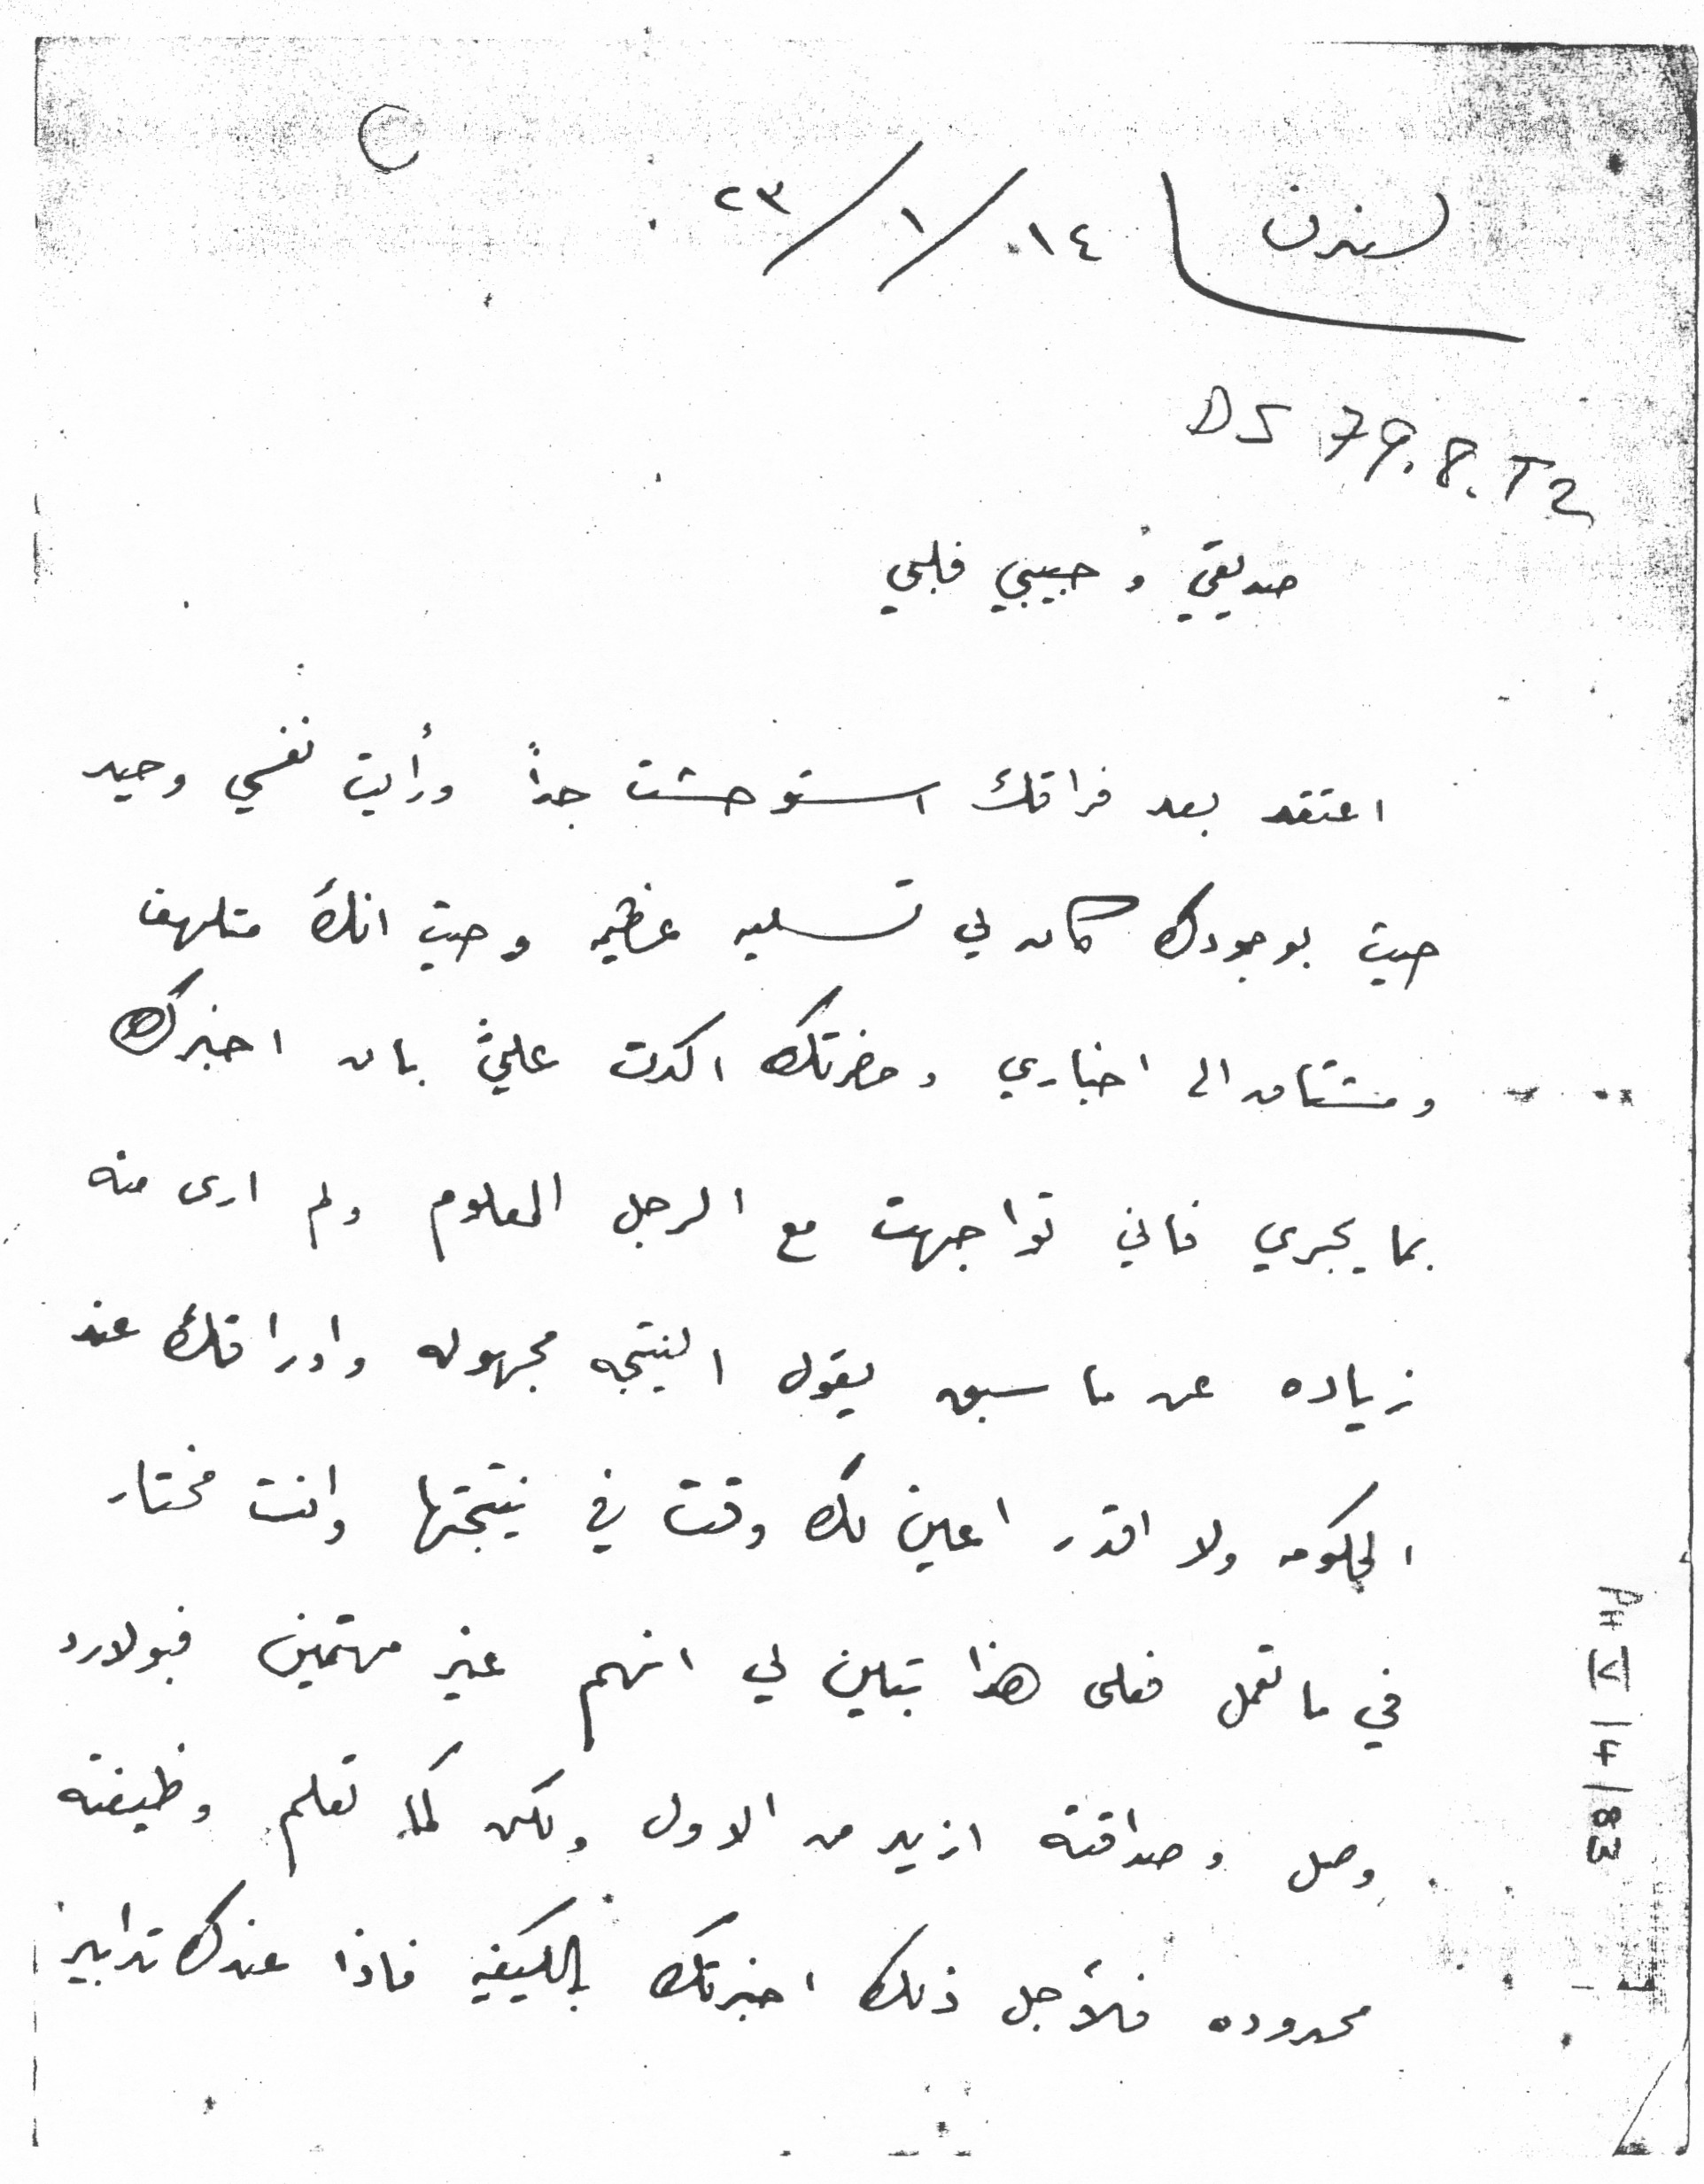 لندن ١٤/١/٢٣
DS 79.8.T2
صديقي و حبيبي قلبي
اعتقد بعد فراقك استوحشت جداً ورأيت نفسي وحيد
حيث بوجودك كان لي تسليه عظيمه وحيث انك متلهف
ومشتاق الى اخباري وحضرتك اكدت عليّ بان اخبرك
بما يجري فاني تواجهت مع الرجل المعلوم ولم ارى منه
زياده عن ما سبق يقول النتيجه مجهوله واوراقك عند
الحكومه ولا اقدر اعين لك وقت في نتيجتها وانت مختار
في ما تعمل فعلى هذا تباين لي انهم غير مهتمين فبولارد
وصل وصداقته ازيد من الاول ولكن كما تعلم وظيفته
محدوده فلأجل ذلك اخبرتك بالكيفيه فاذا عندك تدابير
PH IV/4/83